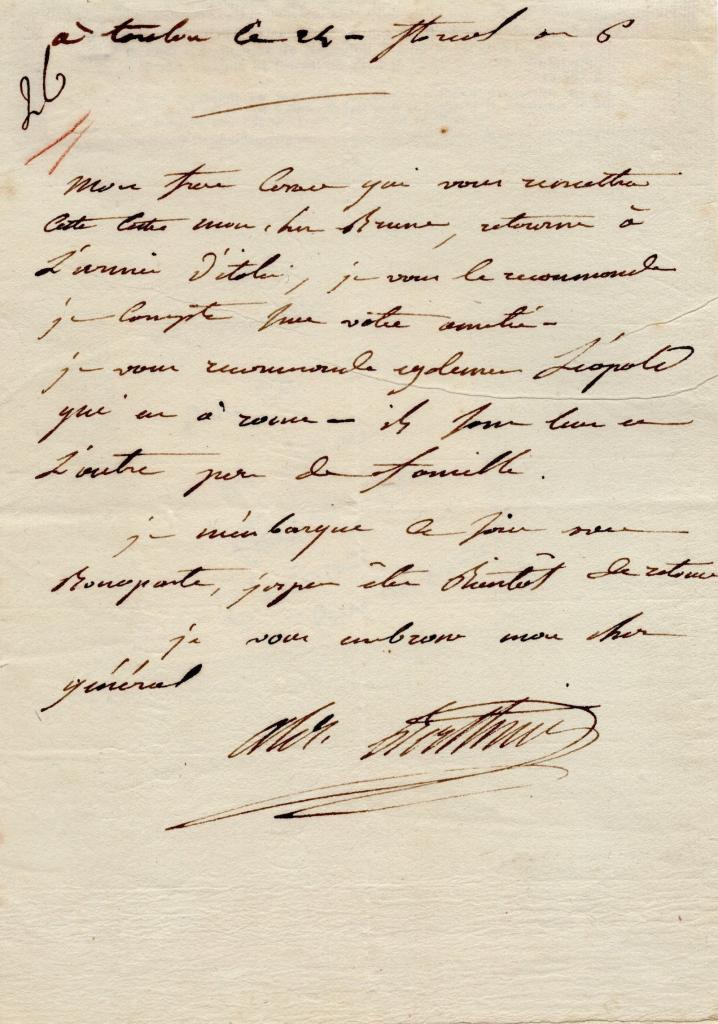 à toulon le 24 - floreal an 6
26
Mon frere Cesar qui vous remettra
Cette lettre mon cher Brune, retourne à
L'armée d'italie, je vous le recommande
je compte sur votre amitié -
je vous recommande egalement Léopold
qui est à rome - ils sont l'un et
L'autre pere de famille.
je m'enbarque ce soir avec
Bonaparte, j'espere être Bientôt de retour
je vous embrasse mon cher
général
Alex. Berthier